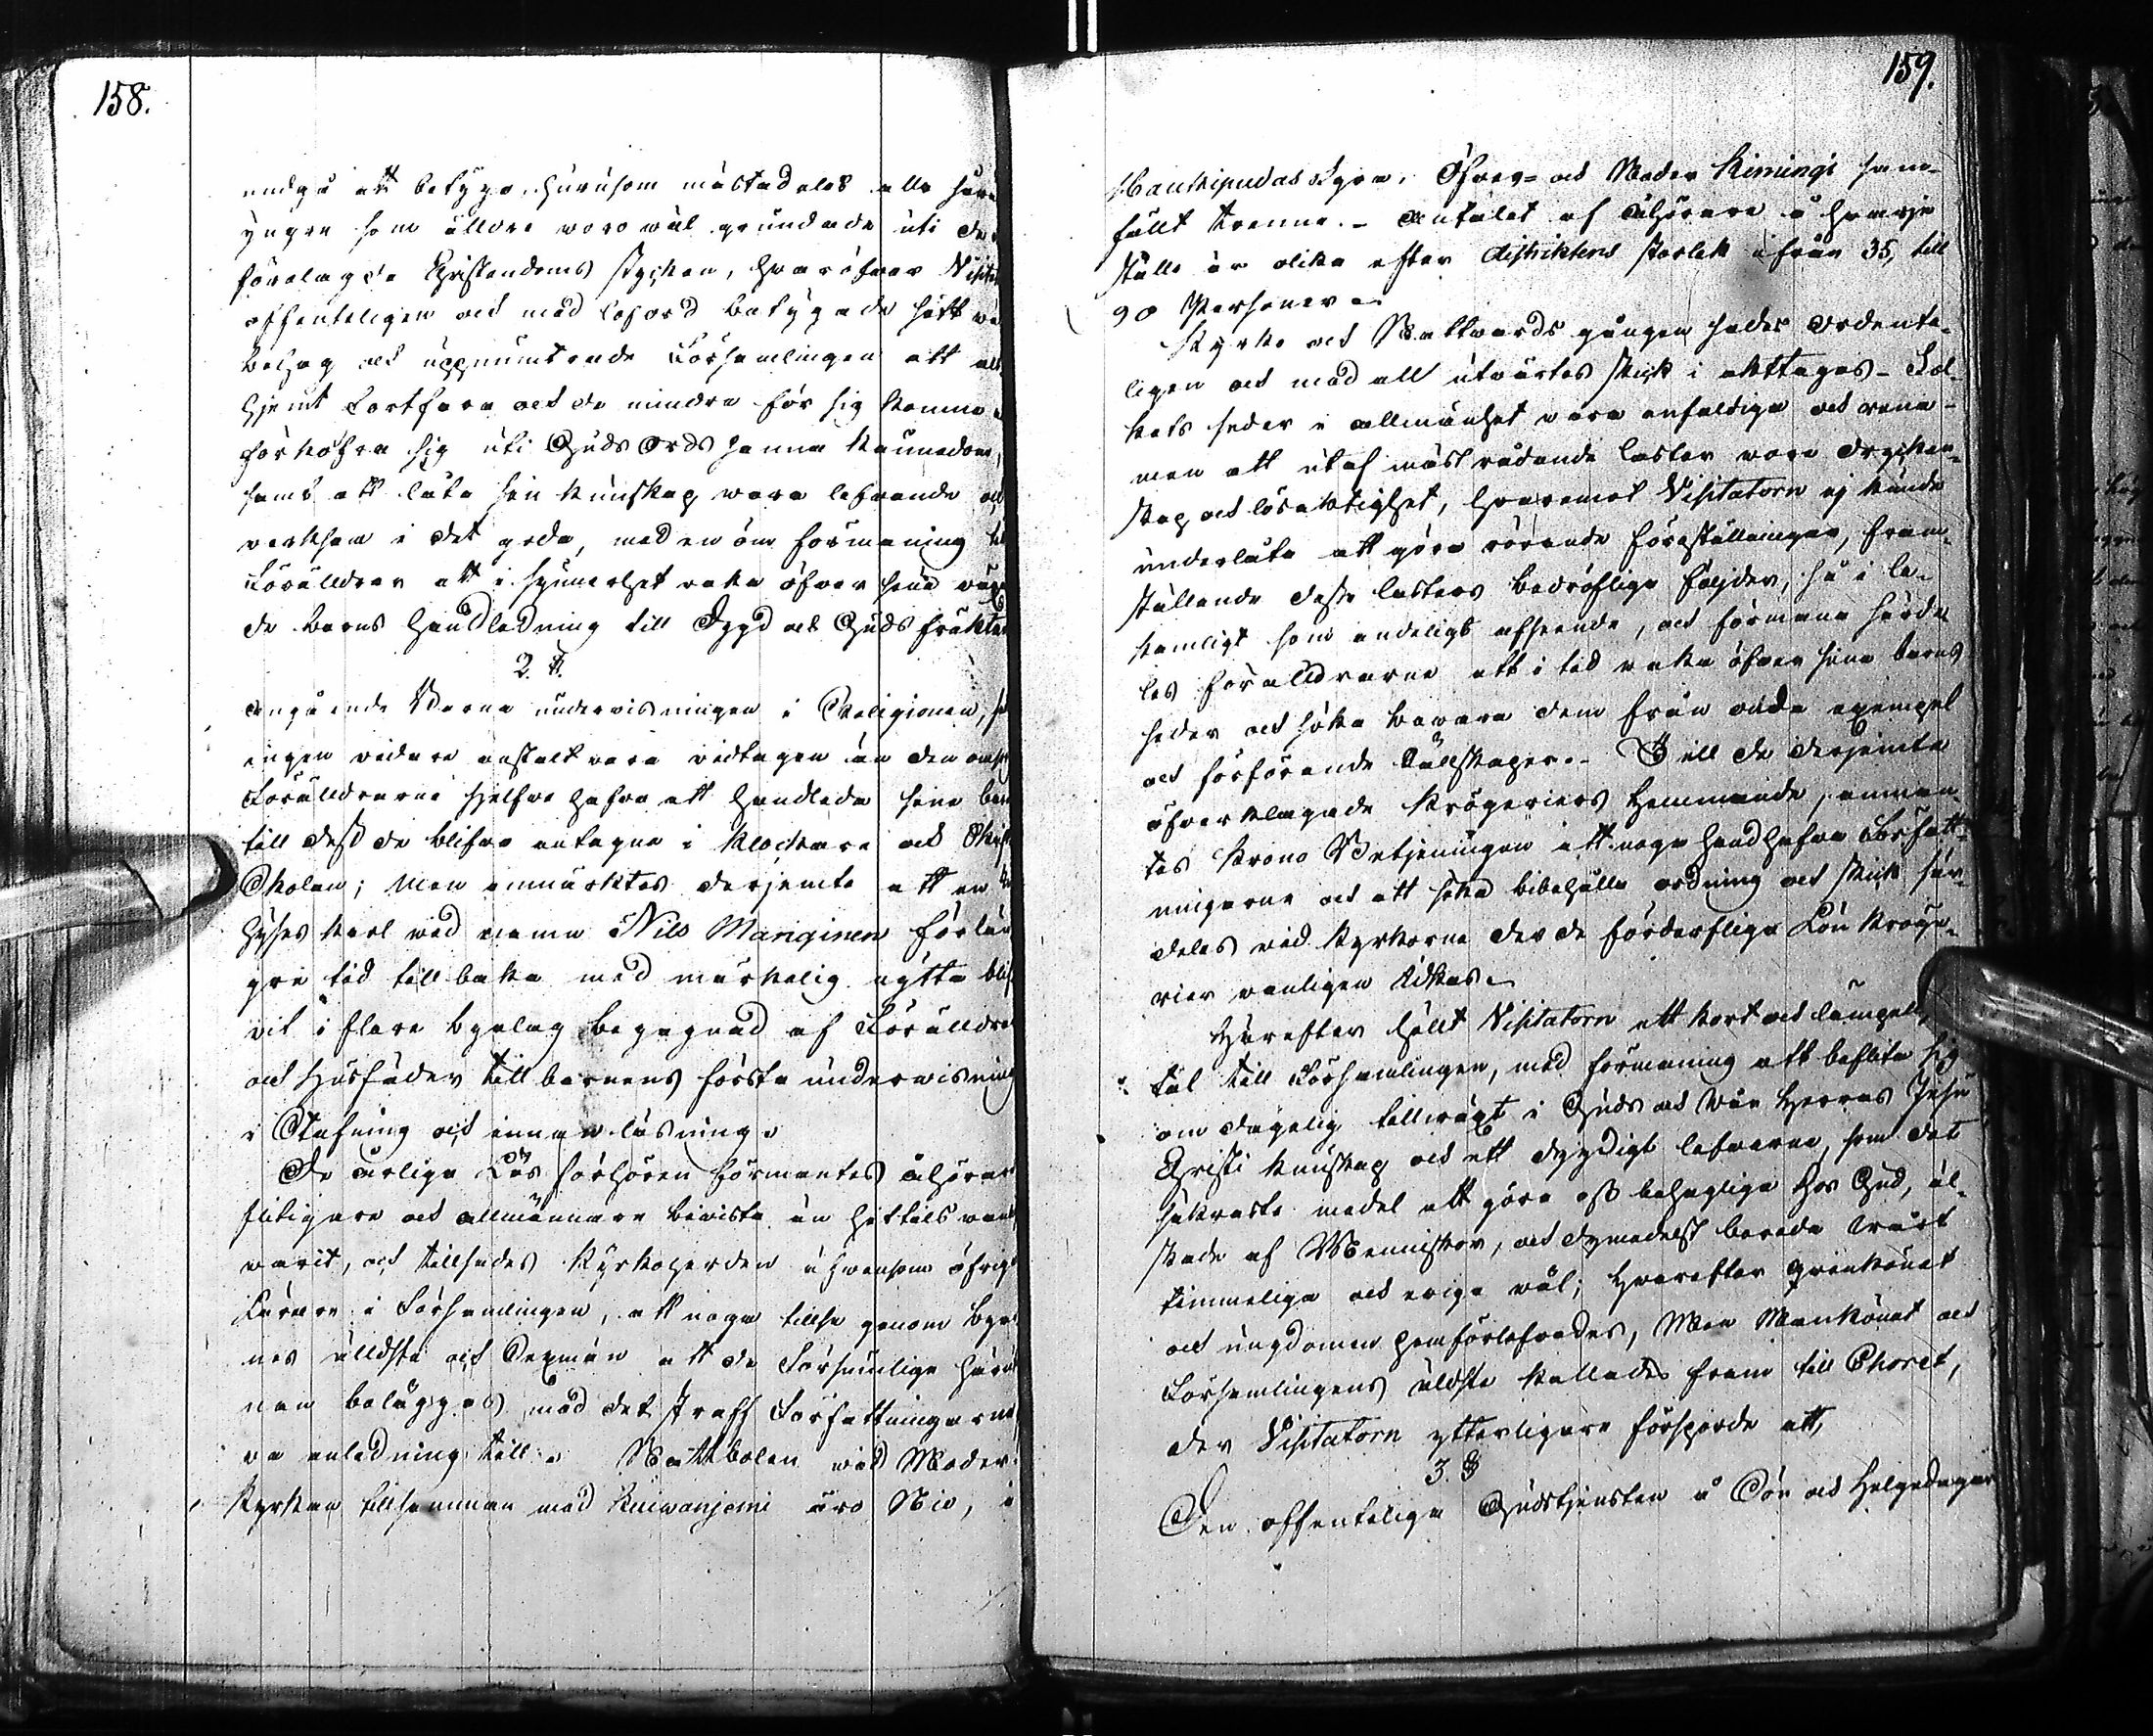 158.
undgå att betyga, hurusom mästadeles alla såväl
yngre som älldre woro wäl grundade uti de
förelagde Christendoms stycken, hvaröfver Visita
offenteligen och med loford betygade sitt wä
behag och uppmuntrade Församlingen att all
hjemt fortfara och de mindre för sig komne
förkofra sig uti Guds Ords sanna kännedom,
samt att låta sin kunskap wara lefvande och
verksam i det goda, med en öm förmaning til
Föräldrar att i synnerhet vaka öfver sina wäx
de barns handledning till Dygd och Guds fruktan
2. §.
Angående Barna undervisningen i Religionen, så
ingen vidare anstalt vara vidtagen än den
Föräldrarne sjelfva hafva att handleda sina barn
till dess de blifva antagne i Klockare och Skrift
Skolan; Men anmärktes derjemte att en
hyses karl vid namn Nils Manginen för län
gre tid tillbaka med märkelig nytta blif
vit i flere byalag begagnad af Föräldra
och Husfäder till barnens första undervisning
i Stafning och innanläsning.
De årliga Läs förhören förmantes åhörare
flitigare och allmännare bivista än hittils
warit, och tillsades Kyrkoherden äfvensom öfrige
Lärare i Församlingen, att noga tillse genom Byar
nes älldste och Sexmän att de Försumlige
nen belägges med det straff Författningarne
va anledning till. Nattbolen vid Moder
Kyrkan tillsamman med Kuiwanjemi äro Nio, i
159.
Haukipudas Syra, Öfver- och Neder Kimingi sam-
fällt trenne. Antalet af Åhörare å hvarje
ställe är olika efter distriktens storlek ifrån 35, till
90 Personer.
Kyrko och Nattvards gången sades ordente-
ligen och med all utvärtes skick i akttagas. Fol-
kets seder i allmänhet vara enfaldiga och rena
men att utaf mäst rådande laster wore Drycken-
skap och lösaktighet, hvaremot Visitatorn ej kunde
underlåta att göra rörande föreställningar, fram-
ställande desse lasters bedröflige följder, så i le-
kamligt som andeligt afseende, och förmana särde-
les föräldrarne att i tid vaka öfver sina barns
seder och söka bewara dem från onda exempel
och förförande Sällskaper. Till de derjemte
öfverklagade Krögeriers hemmande, anman-
tes Krono Betjeningen att noga handhafva Författ-
ningarne och att söka bibehålla ordning och skick sär-
deles vid Kyrkorne der de förderflige Lön kröge-
rier vanligen idkas.
Härefter höllt Visitatorn ett kort och lämpeligt
tal till Församlingen, med förmaning att beflita sig
om dagelig tillwäxt i Guds och Vår Herras Jesu
Christi kunskap och ett dygdigt lefverne, som det
säkraste medel att göra oss behaglige hos Gud, äl-
skade af Menniskor, och dymedelst bereda wårt
timmeliga och eviga väl; Hvarefter Qvinkönet
och ungdomen hemförlofvades, Men Mankönet och
Församlingens äldste kallades fram till Choret,
der Visitatorn ytterligare försporde att,
3. §
Den offentelige Gudstjensten å Sön och Helgedagar